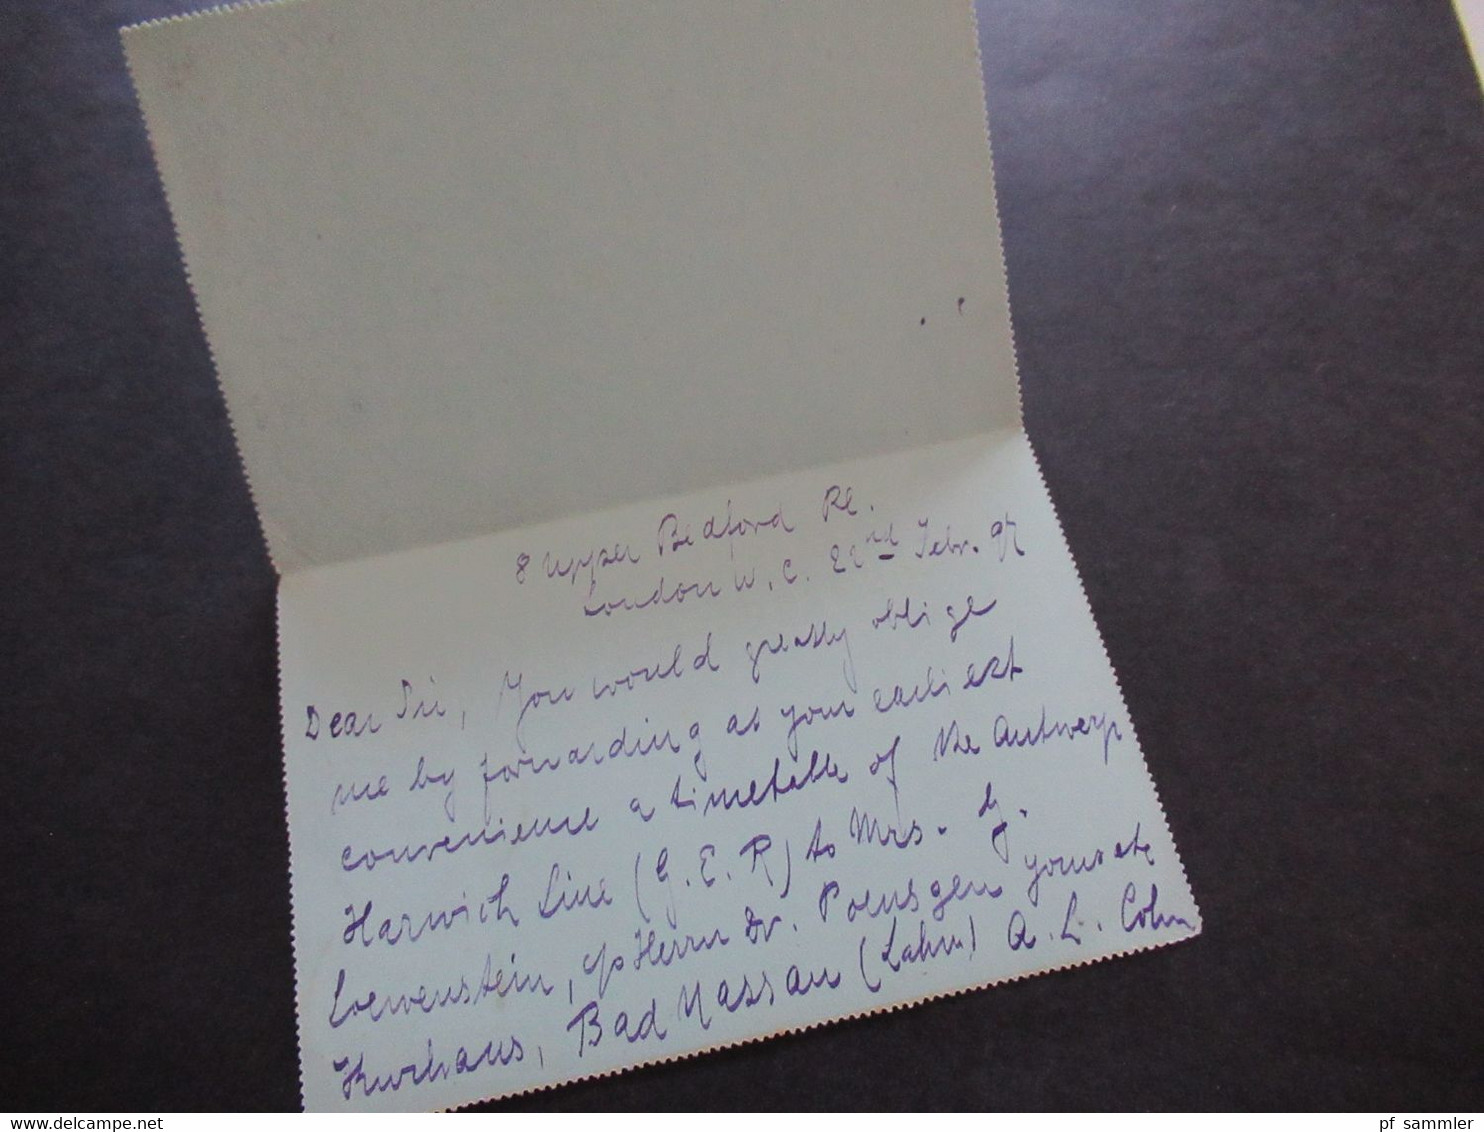 8 Upper Bedford Pl.
London W.C. 22nd Febr. 97
Dear Sir, You would greatly oblige
me by forwarding as your earliest
convenience a timetable of the Antwerp
Harwich Line (G.E.R) to Mrs. J.
Loewenstein, c/o Herrn Dr. Poensgen yours etc
Kurhaus, Bad Nassau (Lahn) A. L. Cohn
www.delcampe.net
pf_sammler